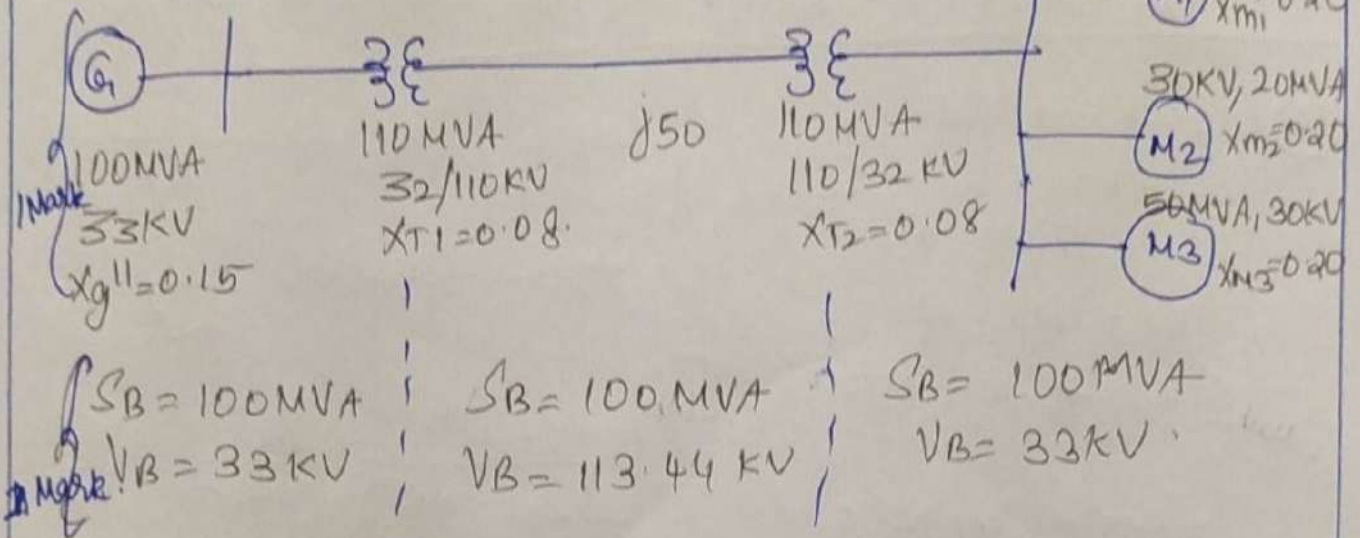 Xm1 0.20
G1
100MVA
33KV
Xg"=0.15
1 Mark
110 MVA
32/110KV
XT1=0.08.
j50
110 MVA
110/32 KV
XT2=0.08
30KV, 20MVA
M2 Xm2=0.20
50MVA, 30KV
M3 XM3=0.20
SB = 100MVA
VB = 33KV
Mark
SB = 100 MVA
VB = 113.44 KV
SB = 100MVA
VB = 33KV.